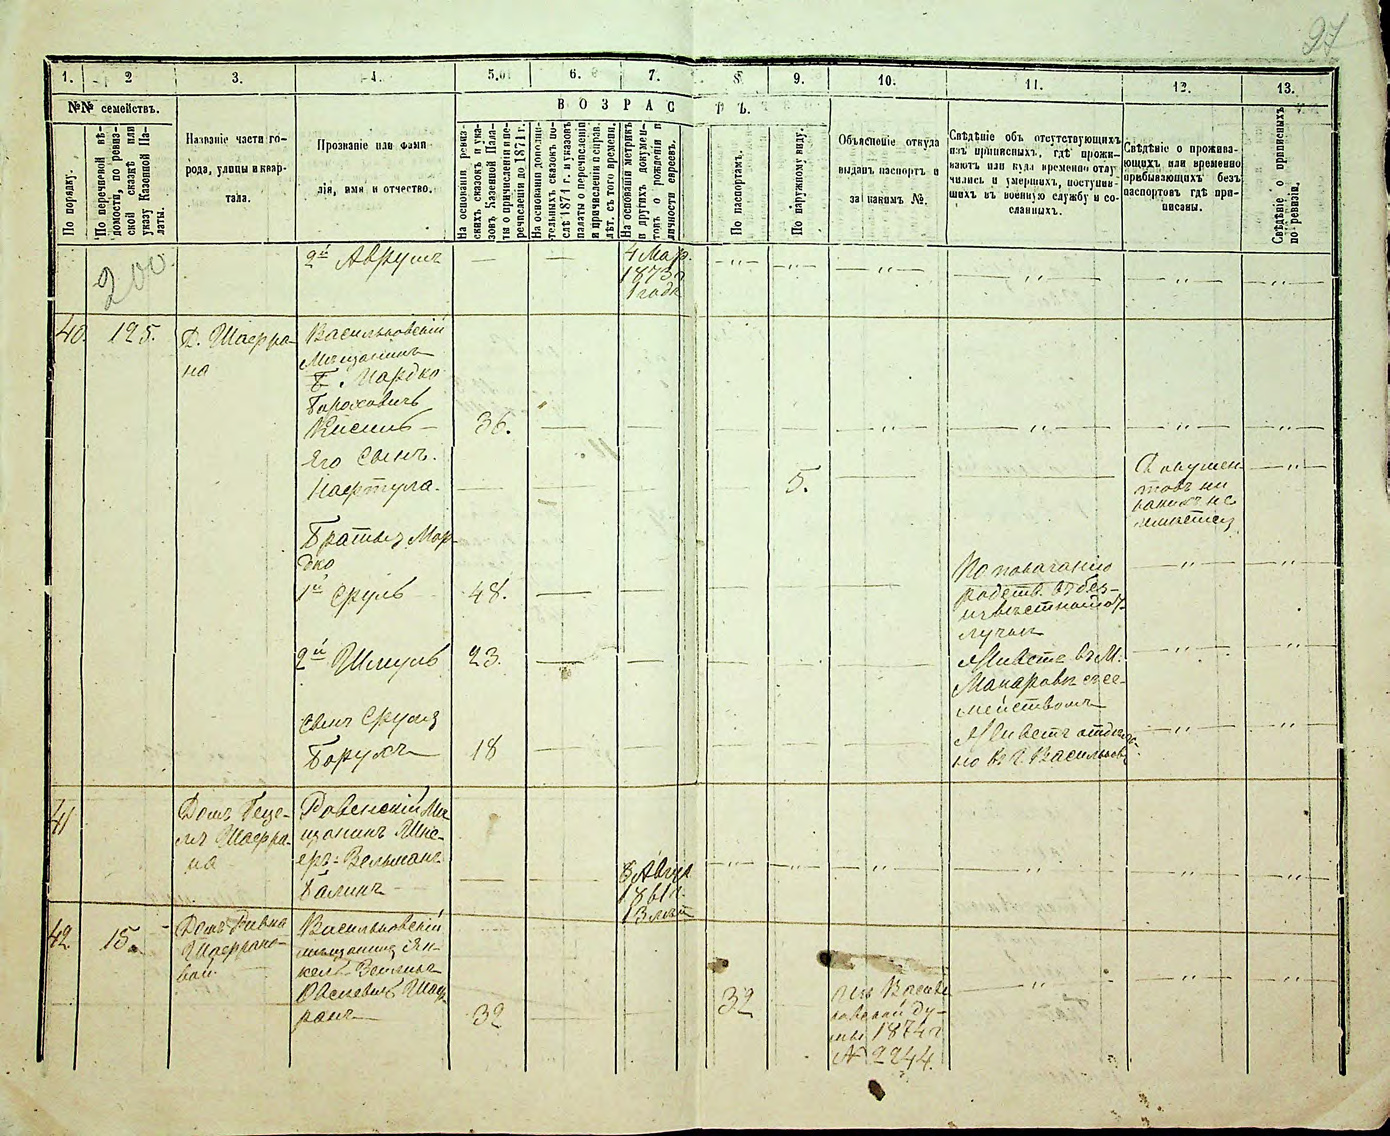 97
1. 2 3. 4. 5. 6. 7. 8. 9. 10. 11. 12. 13.
№№ семействъ.
ВОЗРАСТЪ.
По порядку.
По перечневой вѣ-
домости, по ревиз-
ской сказкѣ или
указу Казенной Па-
латы.
Названіе части го-
рода, улицы и квар-
тала.
Прозваніе или фами-
лія, имя и отчество.
На основаніи ревиз-
скихъ сказокъ и ука-
зовъ Казенной Пала-
ты о причисленіи и пе-
речисленіи до 1871 г.
На основаніи дополни-
тельныхъ сказокъ по-
слѣ 1871 г. и указовъ
палаты о перечисленіи
и причисленіи и справ.
лѣт. съ того времени.
На основаніи метрикъ
и другихъ докумен-
товъ о рожденіи и
личности евреевъ.
По паспортамъ.
По наружному виду.
Объясненіе откуда
выданъ паспортъ и
за какимъ №.
Свѣдѣніе объ отсутствующихъ
изъ приписныхъ, гдѣ прожи-
ваютъ или куда временно отлу-
чились и умершихъ, поступив-
шихъ въ военную службу и со-
сланныхъ.
Свѣдѣніе о прожива-
ющихъ или временно
прибывающихъ безъ
паспортовъ гдѣ при-
писаны.
Свѣдѣніе о приписныхъ
по ревизіи.
200
2й Аврумъ — — 4 Мар.
1873 г
1 года
40. 125. Д. Шафра-
на
Васильковскій
Мѣщанинъ
Мордко
Бороховичъ
Кисиль — 36.
Его сынъ.
Нафтула. 5.
Докумен-
товъ ни
какихъ не
имѣетъ
Братья Мор-
дко
1й Сруль 48.
въ без-
извѣстной от-
лучкѣ
2й Шмуль 23.
Живетъ въ М.
Макаровѣ съ се-
мействомъ
сынъ Сруля
Борухъ 18
Живетъ отдѣль-
но въ г. Василькове
41 Домъ Геце-
ля Шафра-
на
Ровенскій Мѣ-
щанинъ
Вельманъ
Галинъ
8 Авгус
1861 г.
13 лѣт
42. 15. Домъ Ривки
Шафрано-
вой
Васильковскій
мѣщанинъ Ян-
кель
Шаф-
ранъ 32 32
изъ Василь-
ковской ду-
мы 1874 г
№ 2244.